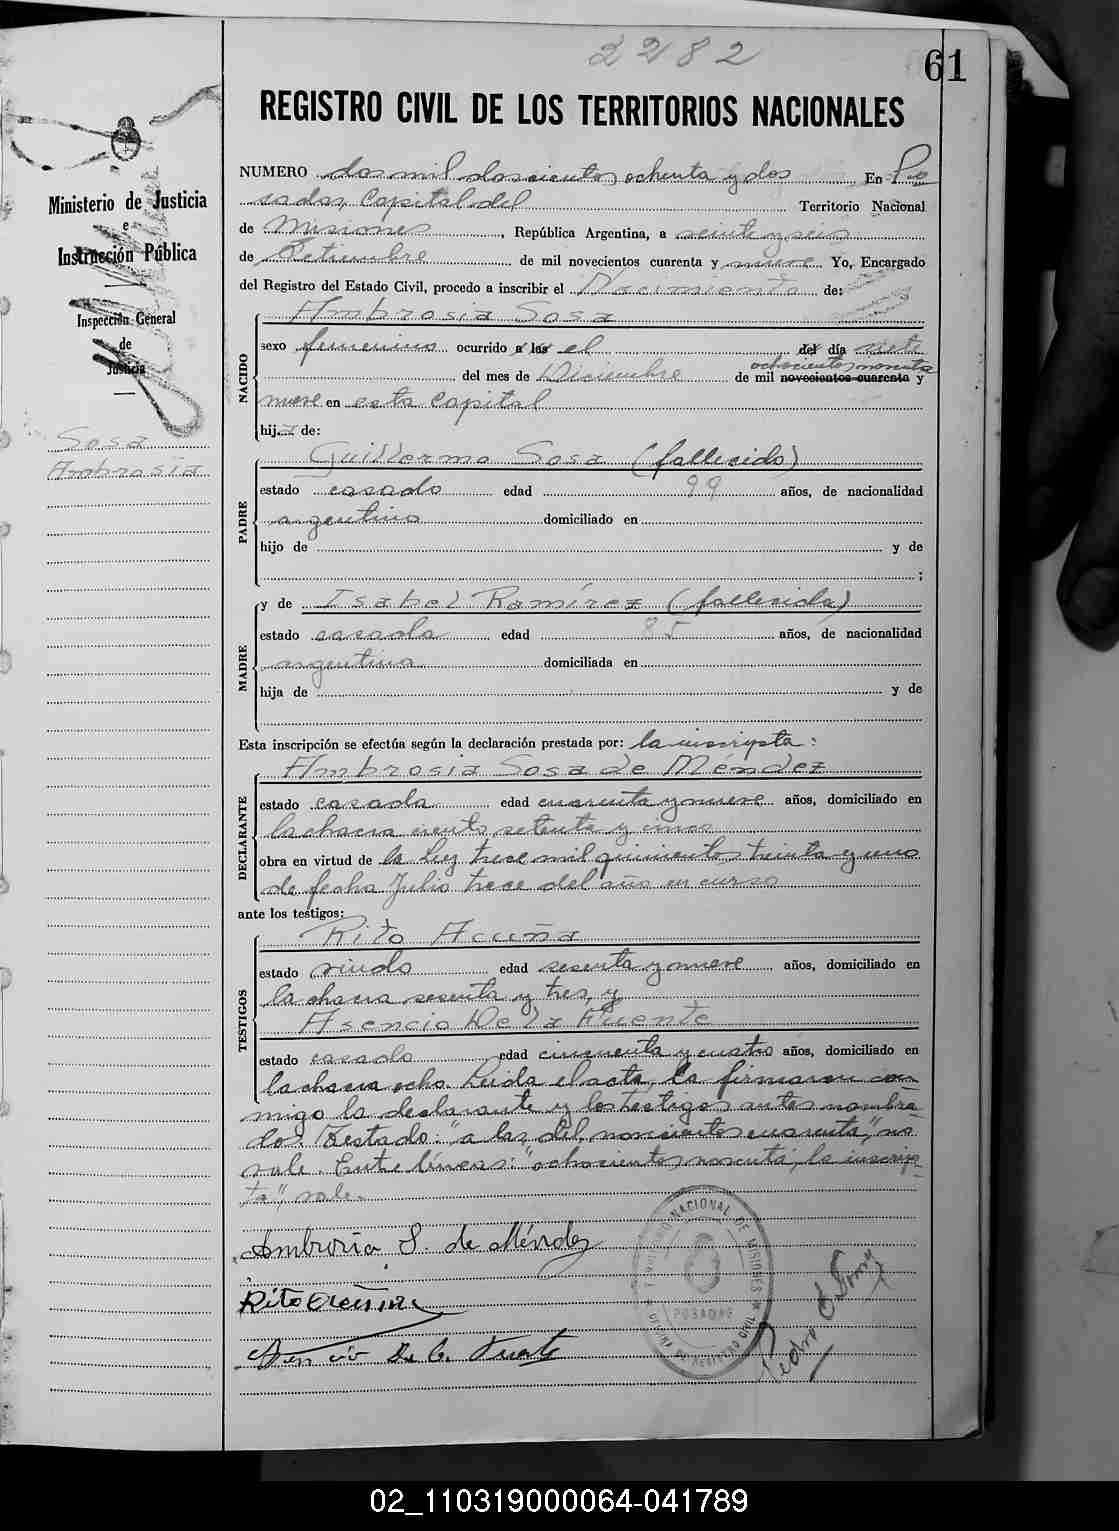 2282
61
REGISTRO CIVIL DE LOS TERRITORIOS NACIONALES
Ministerio de Justicia
e
Instrucción Pública
Inspección General
de
Justicia
Sosa
Ambrosia
NUMERO dos mil doscientos ochenta y dos En Po
sadas, Capital del Territorio Nacional
de Misiones, República Argentina, a veinte y seis
de Setiembre de mil novecientos cuarenta y nueve Yo, Encargado
del Registro del Estado Civil, procedo a inscribir el Nacimiento de:
NACIDO
Ambrosia Sosa
sexo femenino ocurrido a las el del día siete
ochocientos noventa
del mes de Diciembre de mil novecientos cuarenta y
nueve en esta Capital
hija de:
PADRE
Guillermo Sosa (fallecido)
estado casado edad 99 años, de nacionalidad
argentino domiciliado en
hijo de y de
;
MADRE
y de Isabel Ramírez (fallecida)
estado casada edad 85 años, de nacionalidad
argentina domiciliada en
hija de y de
Esta inscripción se efectúa según la declaración prestada por: la inscripta:
DECLARANTE
Ambrosia Sosa de Méndez
estado casada edad cuarenta y nueve años, domiciliado en
la chacra ciento setenta y cinco
obra en virtud de la Ley trece mil quinientos treinta y uno
de fecha Julio trece del año en curso
ante los testigos:
TESTIGOS
Rito Acuña
estado viudo edad sesenta y nueve años, domiciliado en
la chacra sesenta y tres, y
Asencio De la Fuente
estado casado edad cincuenta y cuatro años, domiciliado en
la chacra ocho. Leida el acta, la firmaron con-
migo la declarante y los testigos antes nombra-
dos. Testado: "a las, del, novecientos cuarenta," no
vale. Entre líneas: "ochocientos noventa, la inscrip-
ta", vale.
Ambrosia S. de Méndez
Rito Acuña
Asencio De la Fuente
TERRITORIO NACIONAL DE MISIONES
POSADAS
OFICINA DE REGISTRO CIVIL
Pedro
02_110319000064-041789